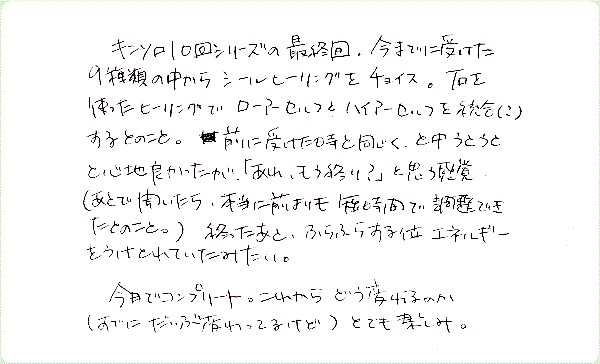 キンソロ10回シリーズの最終回。今までに受けた
9種類の中からシールヒーリングをチョイス。石を
使ったヒーリングでローアーセルフとハイアーセルフを統合(?)
するとのこと。前に受けた時と同じく、と中うとうと
と心地良かったが、「あれ、もう終り?」と思う感覚。
(あとで聞いたら、本当に前よりも短時間で調整でき
たとのこと。) 終ったあと、ふらふらする位エネルギー
をうけとれていたみたい。
今日でコンプリート。これからどう変わるのか
(すでにだいぶ変わってるけど)とても楽しみ。